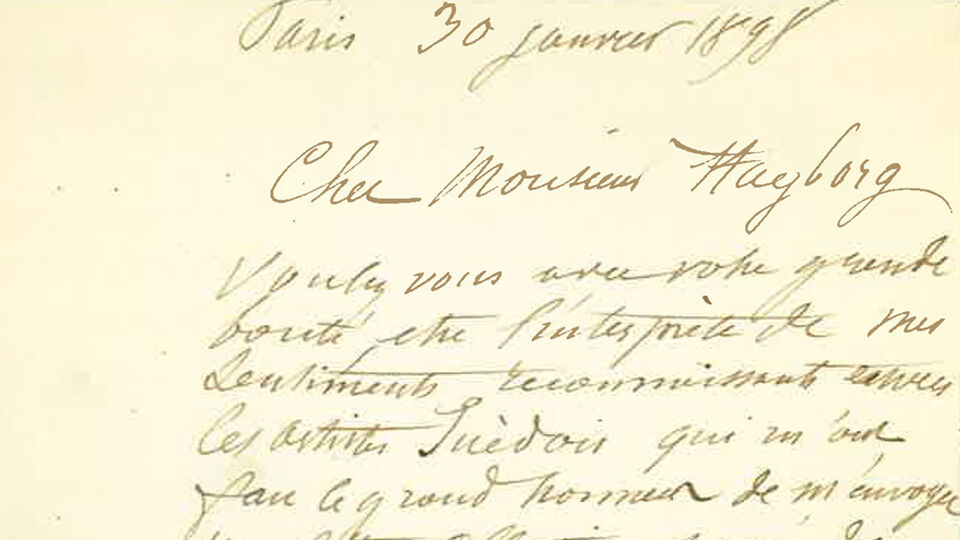 Paris 30 janvier 1898
Cher Monsieur Hagborg
Voulez vous avec votre grande
bonté être l'interprète de mes
sentiments reconnaissants envers
les artistes Suèdois qui m'ont
fait le grand honneur de m'envoyer